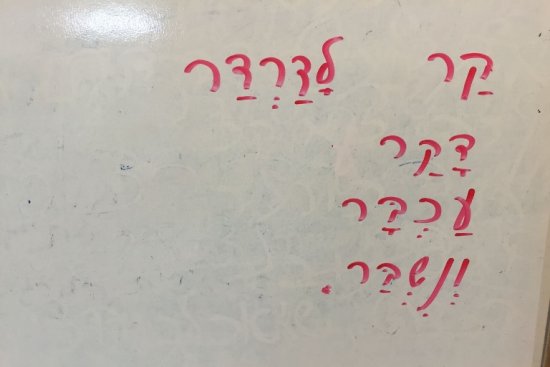 קַר לָדַּרְדַּר
דָּקַר
עַכְבָּר
וְנִשְׁבַּר.